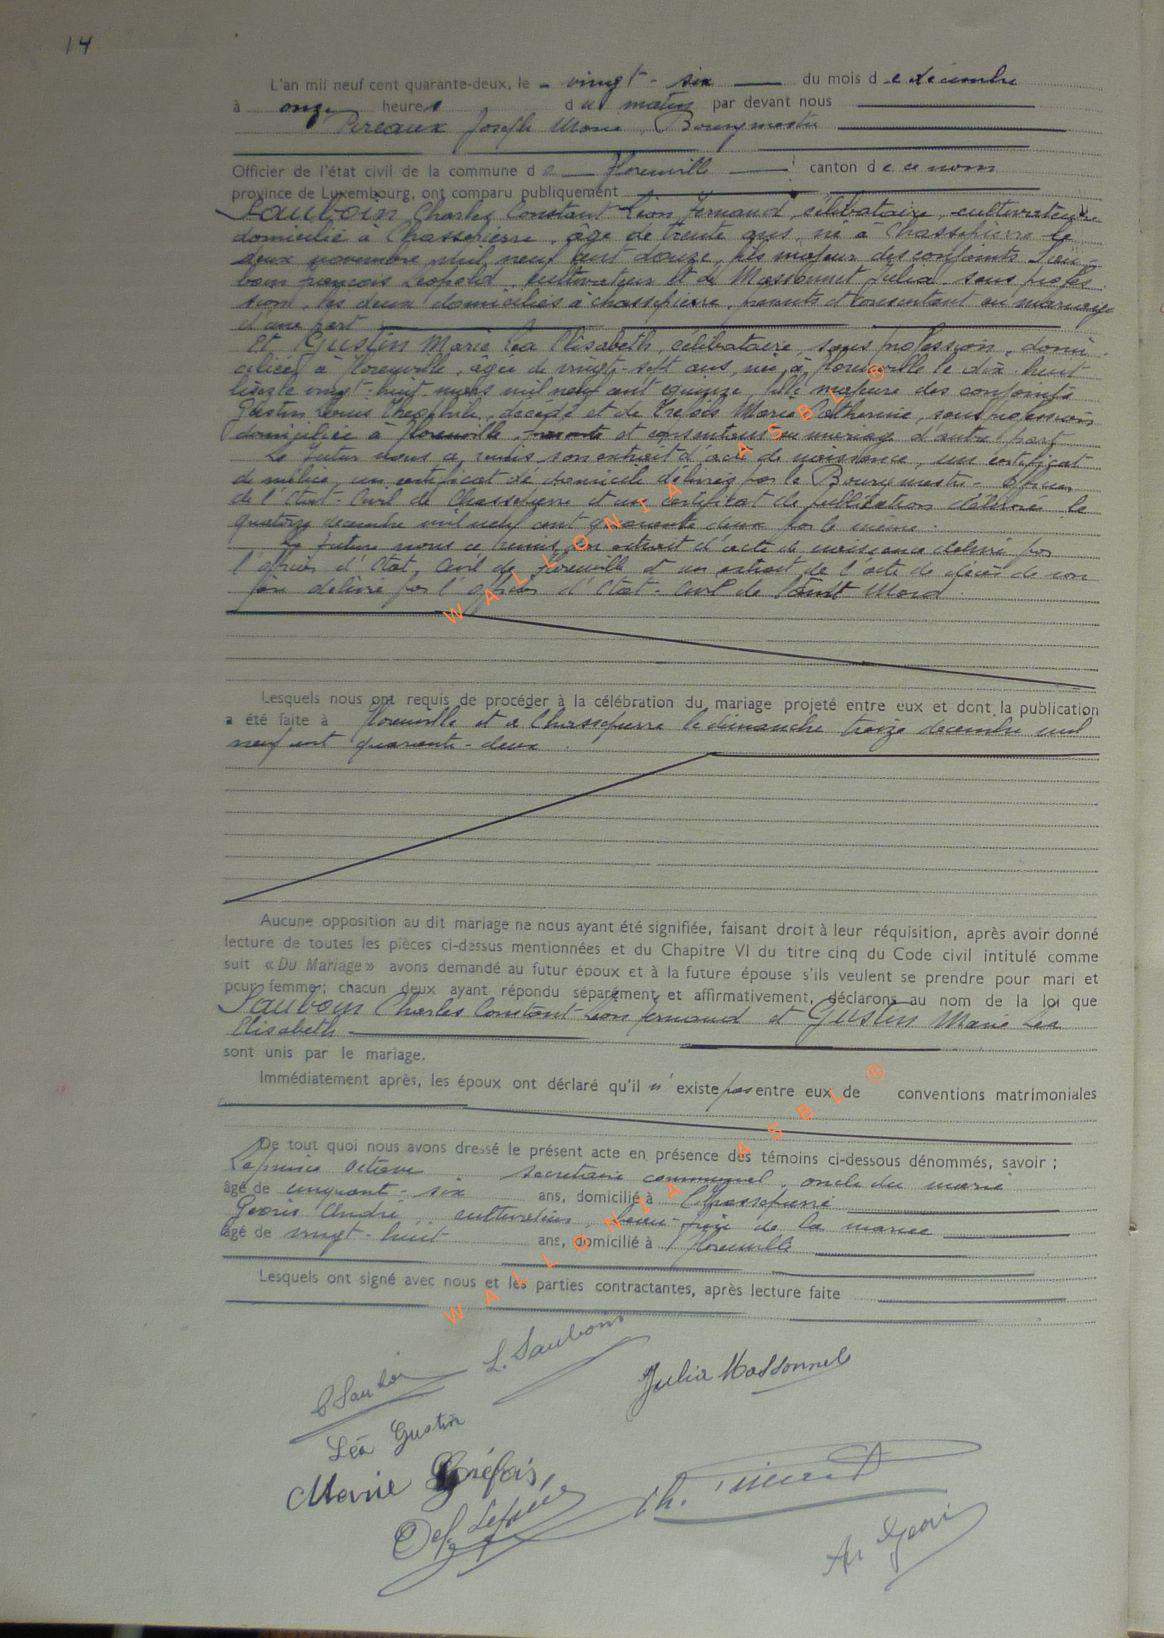 14
L'an mil neuf cent quarante-deux, le vingt-six du mois de décembre
à onze heures du matin par devant nous
Joseph Marie, Bourgmestre
Officier de l'état civil de la commune de Florenville canton de ce nom
province de Luxembourg, ont comparu publiquement
Sauboin Charles Constant Léon Fernand, célibataire, cultivateur,
domicilié à Chassepierre, âgé de trente ans, né à Chassepierre le
deux novembre mil neuf cent douze, fils majeur des conjoints Sau-
boin François Léopold, cultivateur et de Massonnet Julia, sans profes
sion, les deux domiciliés à Chassepierre, présents et consentant au mariage
d'une part
et Gustin Marie Léa Elisabeth, célibataire, sans profession, domi
ciliée à Florenville, âgée de vingt-sept ans, née à Florenville le
vingt-huit mars mil neuf cent quinze, fille majeure des conjoints
Gustin Louis Théophile, décédé et de Tréfois Marie Catherine, sans profession
domiciliée à Florenville, présente et consentant au mariage d'autre part
Le futur nous a remis son extrait d'acte de naissance, un certificat
de milice, un certificat de domicile délivrés par le Bourgmestre - Officier
de l'Etat-Civil de Chassepierre et un certificat de publication délivré le
quatorze décembre mil neuf cent quarante deux par le même.
La future nous a remis un extrait d'acte de naissance délivré par
l'officier d'Etat-Civil de Florenville et un extrait de l'acte de décès de son
père délivré par l'officier d'Etat-Civil de Saint Mard.
Lesquels nous ont requis de procéder à la célébration du mariage projeté entre eux et dont la publication
a été faite à Florenville et à Chassepierre le dimanche treize décembre mil
neuf cent quarante-deux.
Aucune opposition au dit mariage ne nous ayant été signifiée, faisant droit à leur réquisition, après avoir donné
lecture de toutes les pièces ci-dessus mentionnées et du Chapitre VI du titre cinq du Code civil intitulé comme
suit « Du Mariage » avons demandé au futur époux et à la future épouse s'ils veulent se prendre pour mari et
pour femme; chacun deux ayant répondu séparément et affirmativement, déclarons au nom de la loi que
Sauboin Charles Constant Léon Fernand et Gustin Marie Léa
Elisabeth
sont unis par le mariage.
Immédiatement après, les époux ont déclaré qu'il n'existe pas entre eux de conventions matrimoniales
De tout quoi nous avons dressé le présent acte en présence des témoins ci-dessous dénommés, savoir ;
Octave secrétaire communal, oncle du marié
âgé de cinquante-six ans, domicilié à Chassepierre
André, cultivateur, beau-frère de la mariée
âgé de vingt-huit ans, domicilié à Florenville
Lesquels ont signé avec nous et les parties contractantes, après lecture faite
L. Sauboin
Julia Massonnet
C Sauboin
Léa Gustin
Marie Tréfois
WALLONIA ASBL ®
WALLONIA ASBL ®